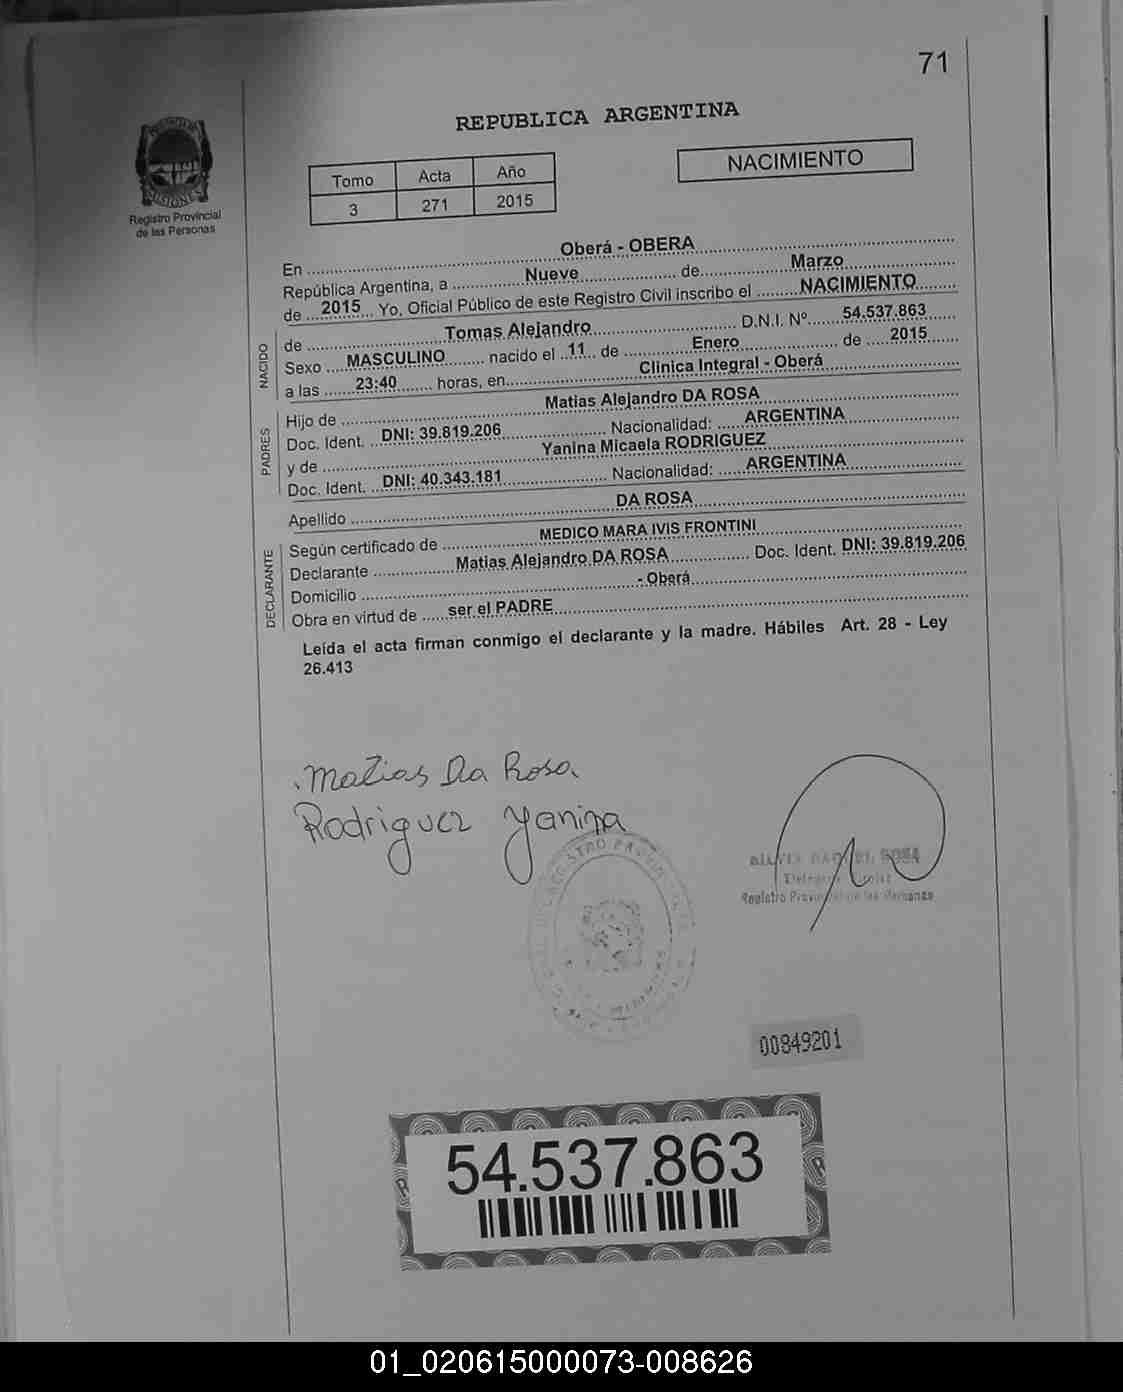 71
REPUBLICA ARGENTINA
Tomo Acta Año
3 271 2015
NACIMIENTO
Registro Provincial
de las Personas
En Oberá - OBERA
República Argentina, a Nueve de Marzo
de 2015 Yo, Oficial Público de este Registro Civil inscribo el NACIMIENTO
NACIDO
de Tomas Alejandro D.N.I. Nº 54.537.863
Sexo MASCULINO nacido el 11 de Enero de 2015
a las 23:40 horas, en Clinica Integral - Oberá
PADRES
Hijo de Matias Alejandro DA ROSA
Doc. Ident. DNI: 39.819.206 Nacionalidad: ARGENTINA
y de Yanina Micaela RODRIGUEZ
Doc. Ident. DNI: 40.343.181 Nacionalidad: ARGENTINA
Apellido DA ROSA
DECLARANTE
Según certificado de MEDICO MARA IVIS FRONTINI
Declarante Matias Alejandro DA ROSA Doc. Ident. DNI: 39.819.206
Domicilio - Oberá
Obra en virtud de ser el PADRE
Leída el acta firman conmigo el declarante y la madre. Hábiles Art. 28 - Ley
26.413
Matias Da Rosa
Rodriguez Yanina
Registro Provincial de las Personas
00849201
54.537.863
01_020615000073-008626